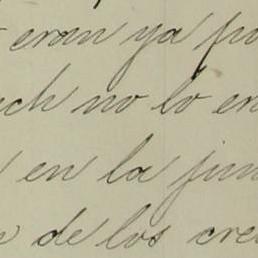 eran ya po
ch no lo en
en la jun
de los cre